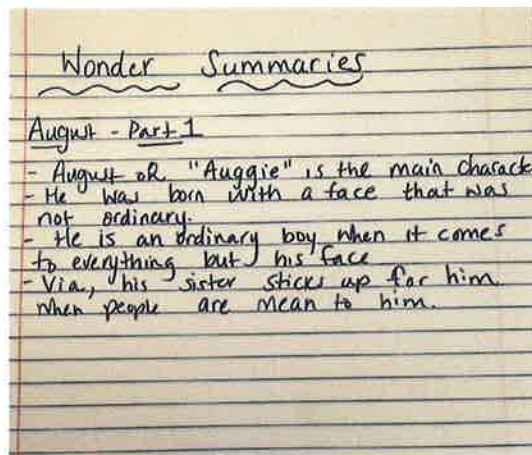 Wonder Summaries
August - Part 1
- August OR "Auggie" is the main charact
- He was born with a face that was
not ordinary.
- He is an ordinary boy when it comes
to everything but his face
- Via, his sister sticks up for him
when people are mean to him.